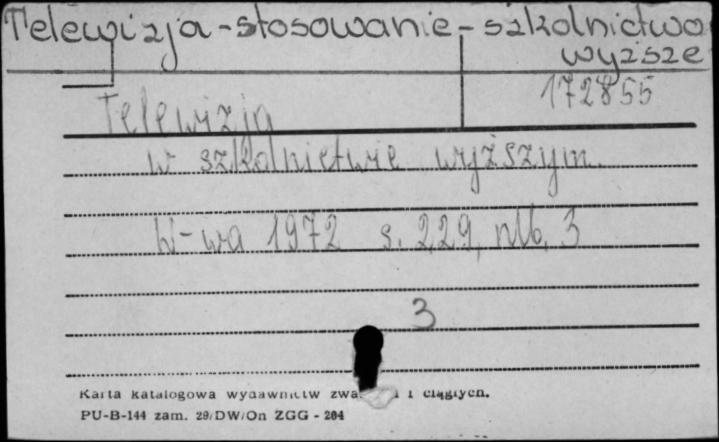 Telewizja - stosowanie - szkolnictwo
wyższe
172855
Telewizja
w szkolnictwie wyższym.
W-wa 1972 s. 229, nlb, 3
3
Karta katalogowa wydawnictw i ciągłych.
PU-B-144 zam. 29/DW/On ZGG - 204